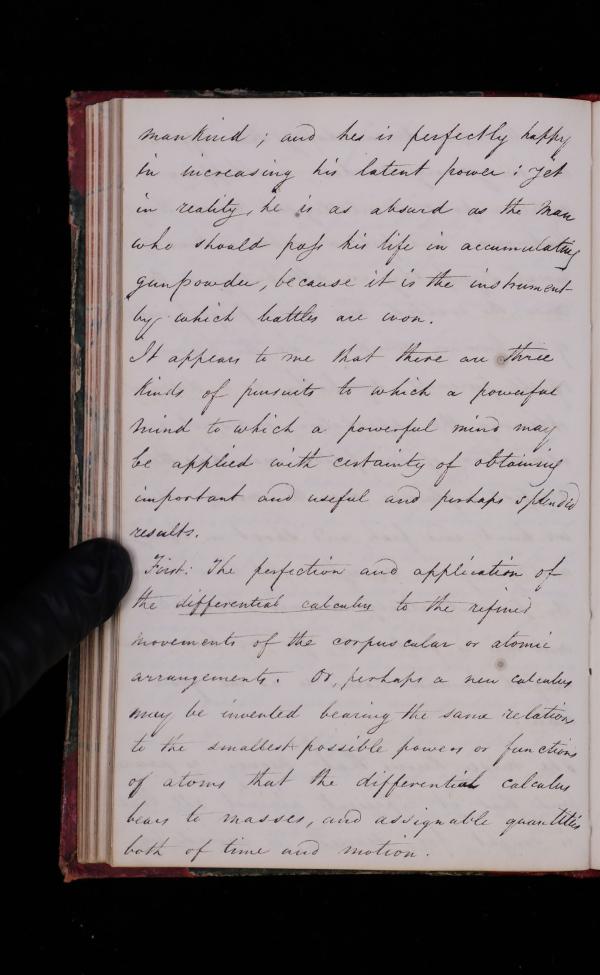 mankind; and hes is perfectly happy
in increasing his latent power: yet
in reality, he is as absurd as the Man
who should pass his life in accumulating
gunpowder, because it is the instrument
by which battles are won.
It appears to me that there are three
kinds of pursuits to which a powerful
mind to which a powerful mind may
be applied with certainty of obtaining
important and useful and perhaps splendid
results.
First: The perfection and application of
the differential calculus to the refined
movements of the corpuscular or atomic
arrangements. Or, perhaps a new calculus
may be invented bearing the same relations
to the smallest possible powers or functions
of atoms that the differential calculus
bears to masses, and assignable quantities
both of time and motion.